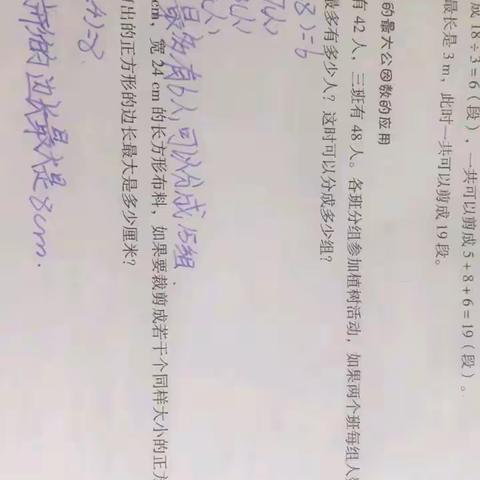 成 18÷3=6(段),一共可以剪成 5+8+6=19(段)。
最长是 3 m,此时一共可以剪成 19 段。
的最大公因数的应用
有 42 人,三班有 48 人。各班分组参加植树活动,如果两个班每组人
最多有多少人?这时可以分成多少组?
8)=6
最多有6人,可以分成15组.
cm,宽 24 cm 的长方形布料,如果要裁剪成若干个同样大小的正方
出的正方形的边长最大是多少厘米?
)=8.
的边长最大是8cm.